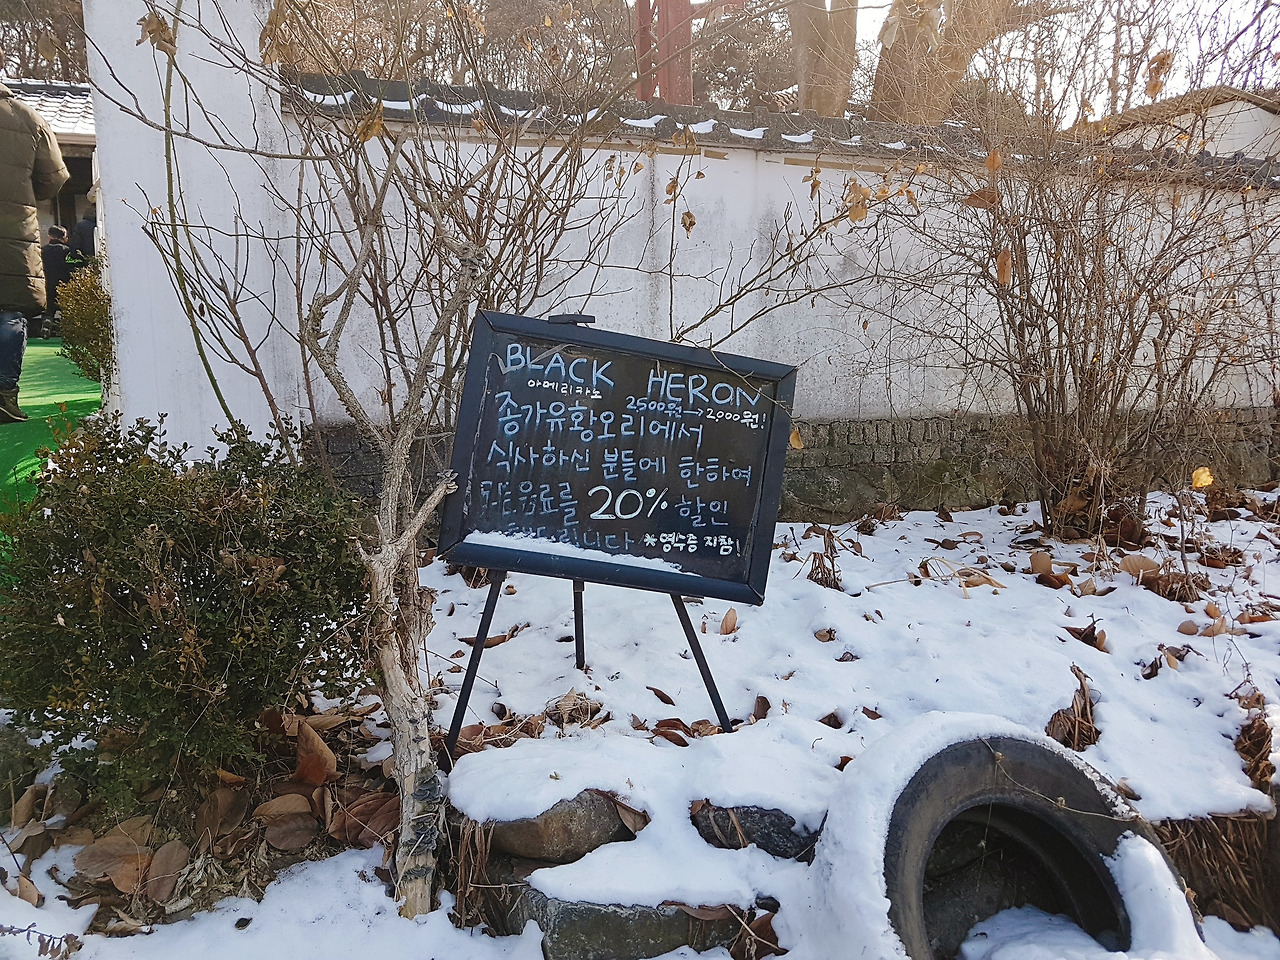 BLACK HERON
아메리카노 2500원→2000원!
종가유황오리에서
식사하신 분들에 한하여
음료를 20% 할인
드립니다 *영수증 지참!